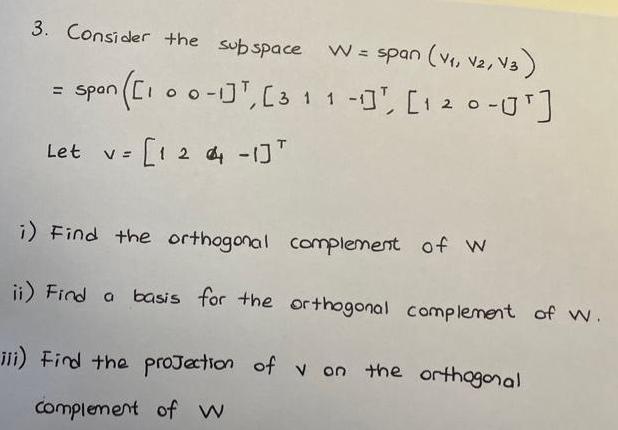 3. Consider the subspace W = span (V1, V2, V3)
= span ([1 0 0 -1]ᵀ, [3 1 1 -1]ᵀ, [1 2 0 -1]ᵀ]
Let v = [1 2 4 -1]ᵀ
i) Find the orthogonal complement of W
ii) Find a basis for the orthogonal complement of W.
iii) Find the proJection of v on the orthogonal
complement of W